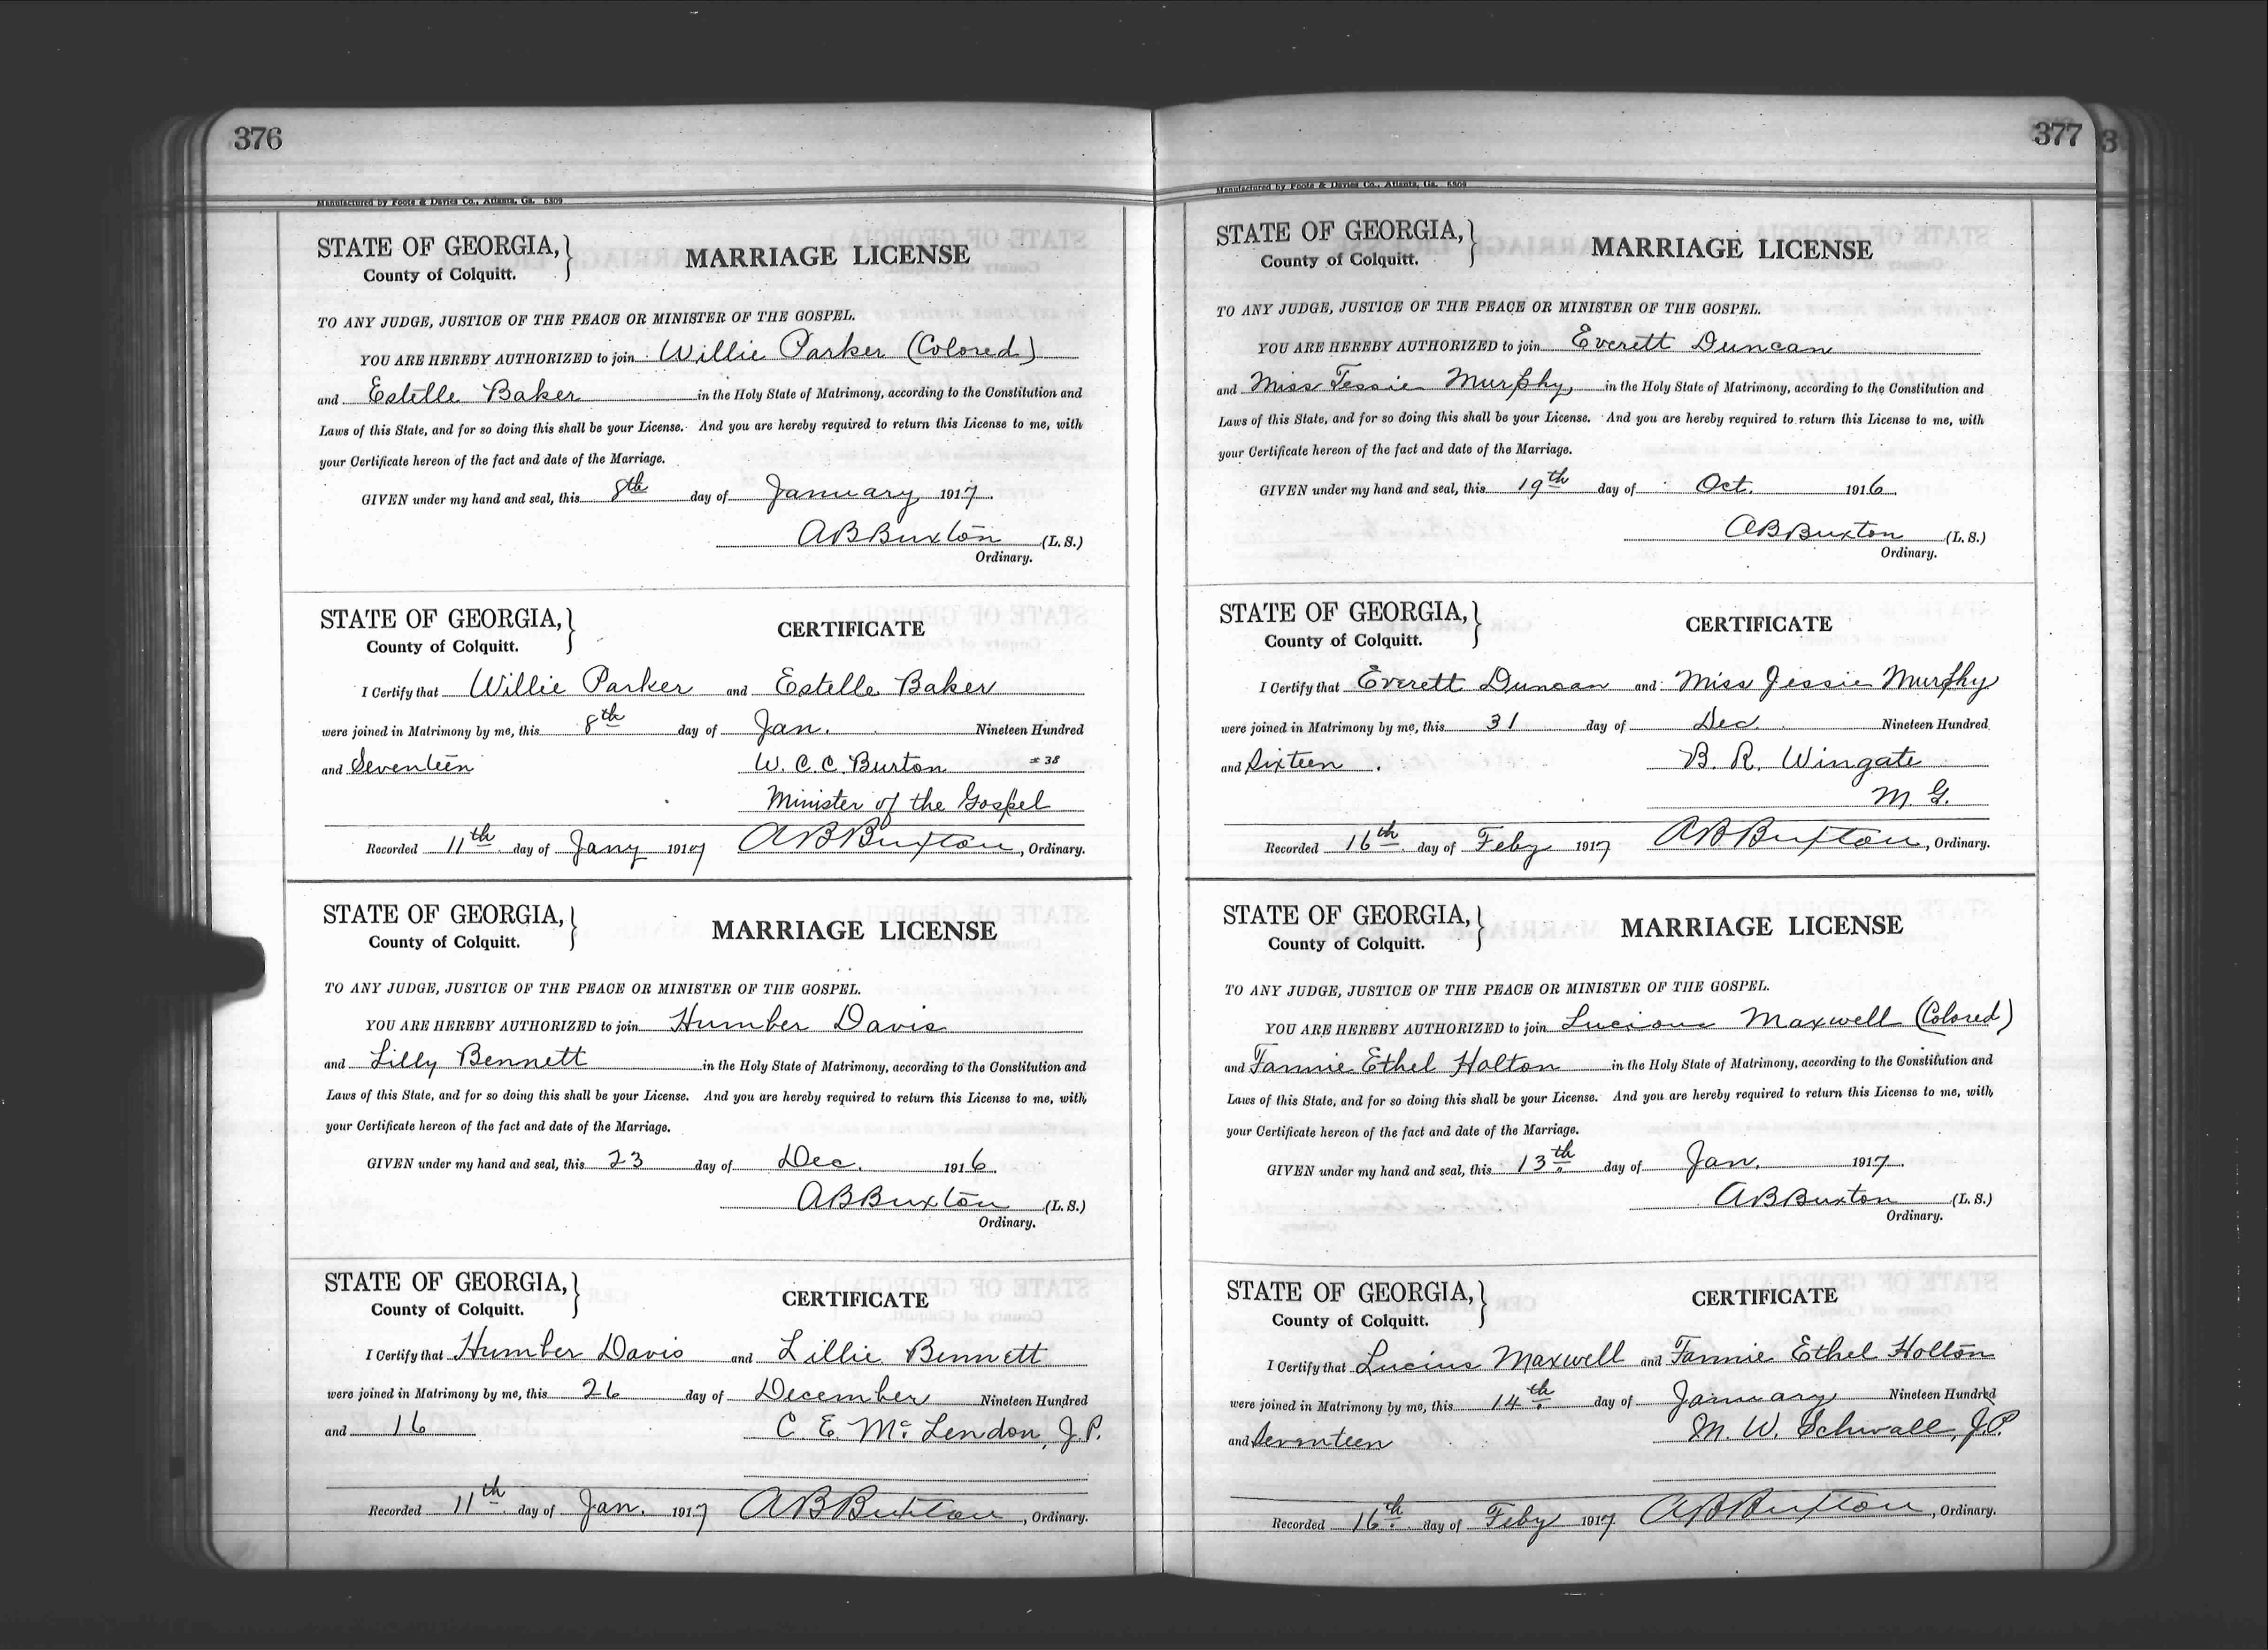 376
Manufactured by Foote & Davies Co., Atlanta, Ga. 5309
STATE OF GEORGIA,
County of Colquitt.
MARRIAGE LICENSE
TO ANY JUDGE, JUSTICE OF THE PEACE OR MINISTER OF THE GOSPEL.
YOU ARE HEREBY AUTHORIZED to join Willie Parker (Colored)
and Estelle Baker in the Holy State of Matrimony, according to the Constitution and
Laws of this State, and for so doing this shall be your License. And you are hereby required to return this License to me, with
your Certificate hereon of the fact and date of the Marriage.
GIVEN under my hand and seal, this 8th day of January 1917.
A B Buxton (L. S.)
Ordinary.
STATE OF GEORGIA,
County of Colquitt.
CERTIFICATE
I Certify that Willie Parker and Estelle Baker
were joined in Matrimony by me, this 8th day of Jan. Nineteen Hundred
and Seventeen W. C. C. Burton #38
Minister of the Gospel
Recorded 11th day of Jany 1917 A B Buxton, Ordinary.
STATE OF GEORGIA,
County of Colquitt.
MARRIAGE LICENSE
TO ANY JUDGE, JUSTICE OF THE PEACE OR MINISTER OF THE GOSPEL.
YOU ARE HEREBY AUTHORIZED to join Humber Davis
and Lilly Bennett in the Holy State of Matrimony, according to the Constitution and
Laws of this State, and for so doing this shall be your License. And you are hereby required to return this License to me, with
your Certificate hereon of the fact and date of the Marriage.
GIVEN under my hand and seal, this 23 day of Dec. 1916.
A B Buxton (L. S.)
Ordinary.
STATE OF GEORGIA,
County of Colquitt.
CERTIFICATE
I Certify that Humber Davis and Lillie Bennett
were joined in Matrimony by me, this 26 day of December Nineteen Hundred
and 16 C. E. McLendon, J.P.
Recorded 11th day of Jan. 1917 A B Buxton, Ordinary.
377
3
Manufactured by Foote & Davies Co., Atlanta, Ga. 5309
STATE OF GEORGIA,
County of Colquitt.
MARRIAGE LICENSE
TO ANY JUDGE, JUSTICE OF THE PEACE OR MINISTER OF THE GOSPEL.
YOU ARE HEREBY AUTHORIZED to join Everett Duncan
and Miss Tessie Murphy, in the Holy State of Matrimony, according to the Constitution and
Laws of this State, and for so doing this shall be your License. And you are hereby required to return this License to me, with
your Certificate hereon of the fact and date of the Marriage.
GIVEN under my hand and seal, this 19th day of Oct. 1916.
A B Buxton (L. S.)
Ordinary.
STATE OF GEORGIA,
County of Colquitt.
CERTIFICATE
I Certify that Everett Duncan and Miss Jessie Murphy
were joined in Matrimony by me, this 31 day of Dec. Nineteen Hundred
and Sixteen. B. R. Wingate
M. G.
Recorded 16th day of Feby 1917 A B Buxton, Ordinary.
STATE OF GEORGIA,
County of Colquitt.
MARRIAGE LICENSE
TO ANY JUDGE, JUSTICE OF THE PEACE OR MINISTER OF THE GOSPEL.
YOU ARE HEREBY AUTHORIZED to join Lucious Maxwell (Colored)
and Fannie Ethel Holton in the Holy State of Matrimony, according to the Constitution and
Laws of this State, and for so doing this shall be your License. And you are hereby required to return this License to me, with
your Certificate hereon of the fact and date of the Marriage.
GIVEN under my hand and seal, this 13th day of Jan. 1917.
A B Buxton (L. S.)
Ordinary.
STATE OF GEORGIA,
County of Colquitt.
CERTIFICATE
I Certify that Lucius Maxwell and Fannie Ethel Holton
were joined in Matrimony by me, this 14th day of January Nineteen Hundred
and Seventeen M. W. Schwall, J.P.
Recorded 16th day of Feby 1917 A B Buxton, Ordinary.